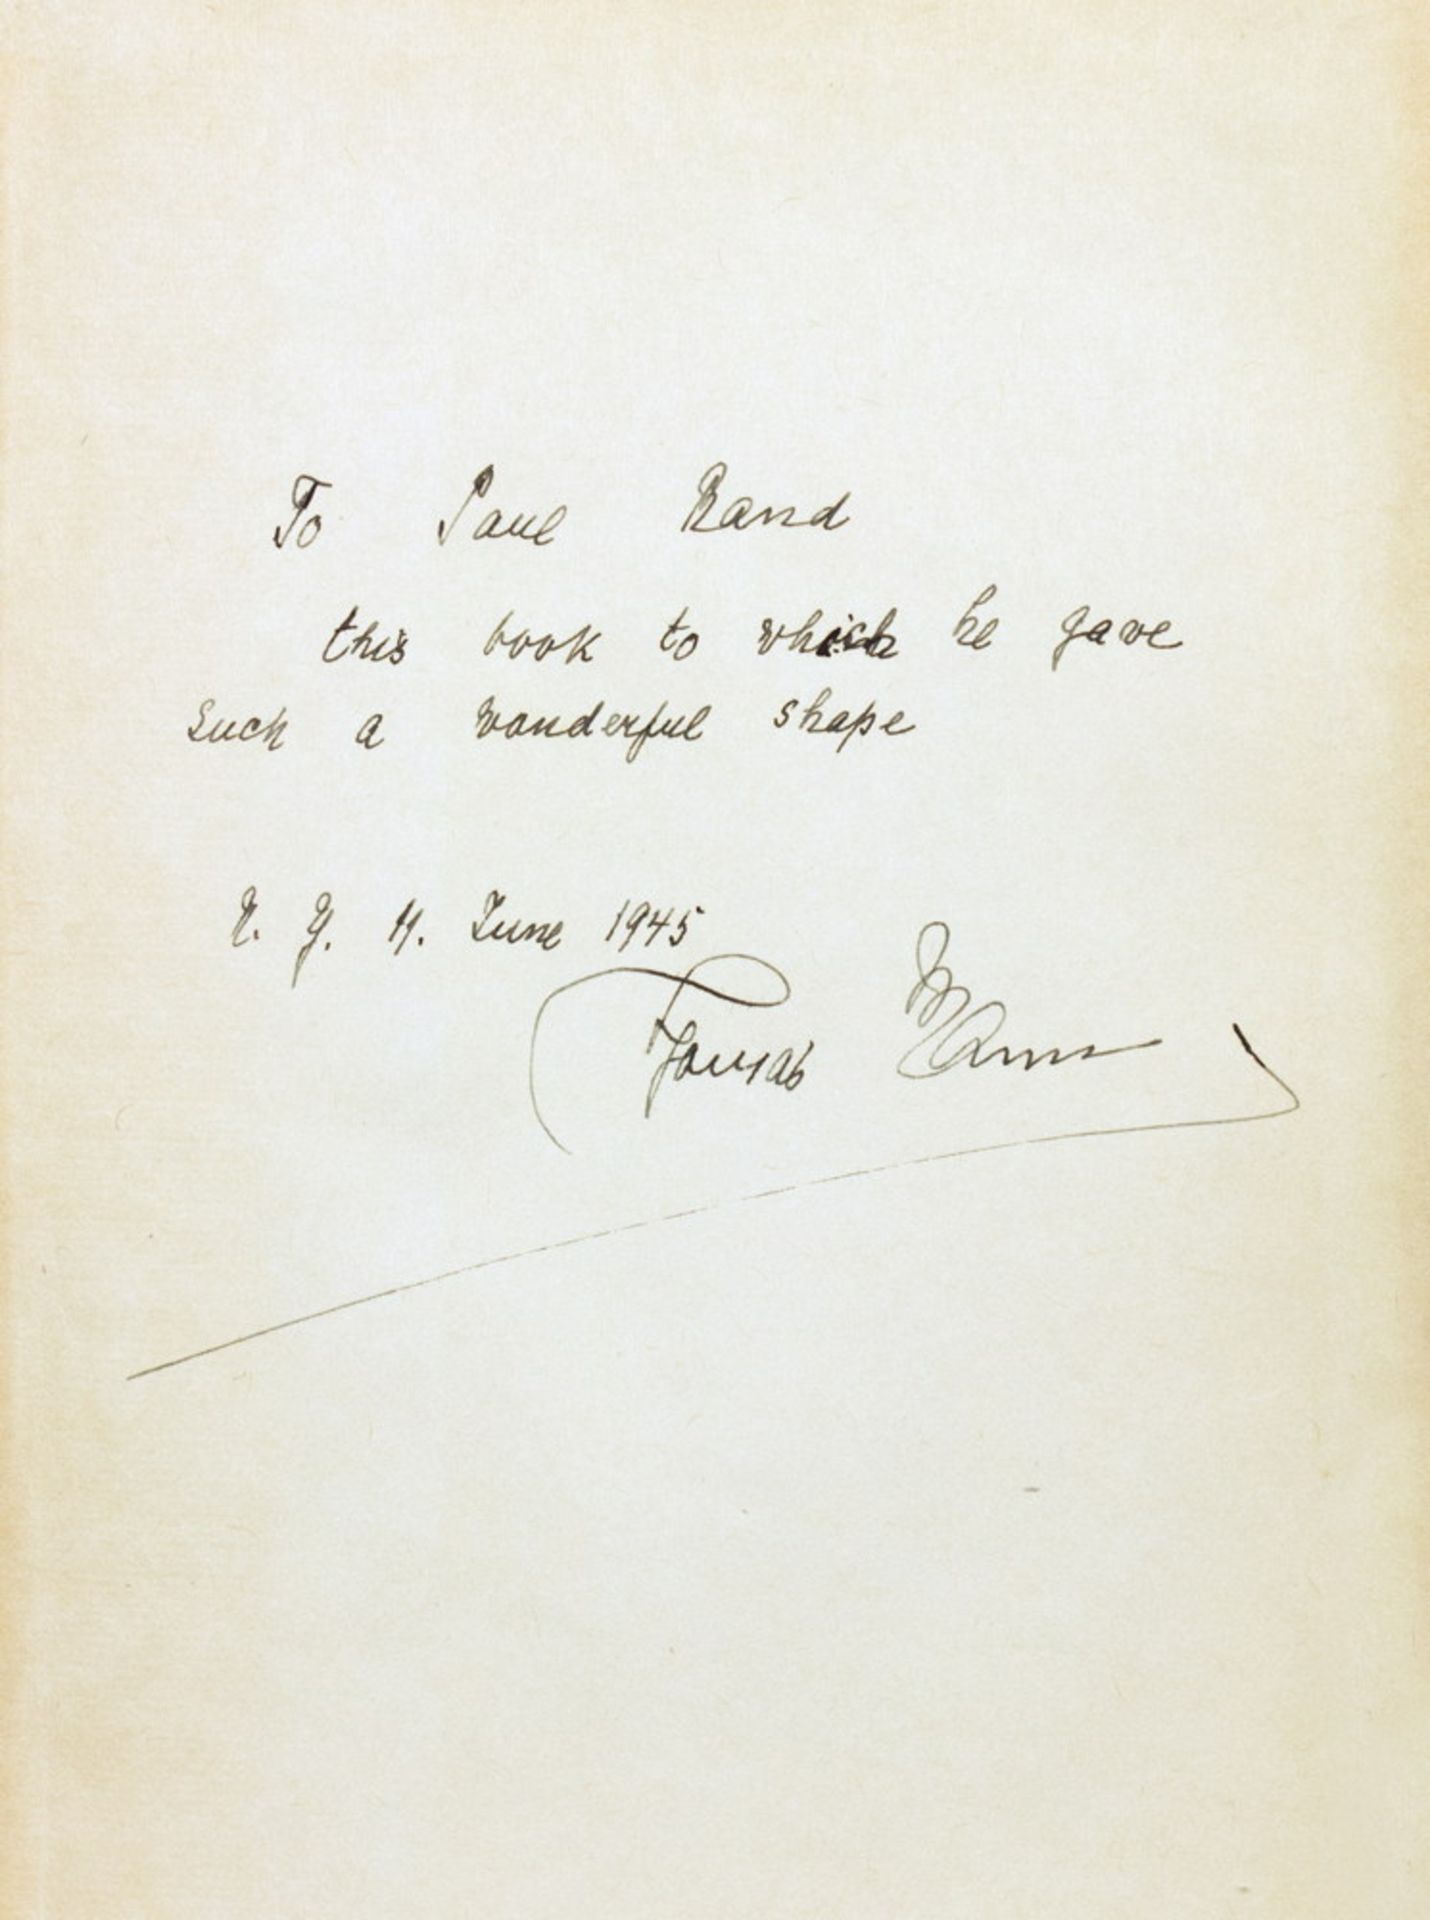 To Paul Rand
this book to which he gave
such a wonderful shape
N. Y. 11. June 1945
Thomas Mann